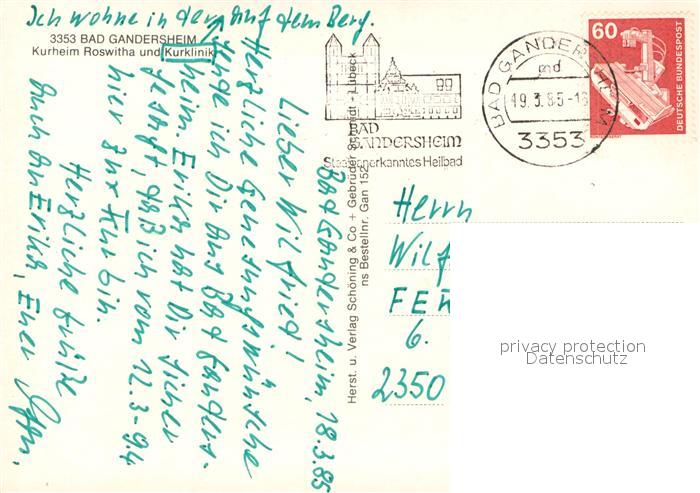 Ich wohne in der, auf dem Berg.
3353 BAD GANDERSHEIM
Kurheim Roswitha und Kurklinik
Bad Gandersheim, 18.3.85
Lieber Wilfried!
Herzliche Genesungswünsche
sende ich Dir aus Bad Ganders-
heim. Erika hat Dir sicher
gesagt, daß ich vom 12.3.-9.4
hier zur Kur bin.
Herzliche Grüße
auch an Erika, Euer
Herst. u. Verlag Schöning & Co + Gebrüder Schmidt - Lübeck
ns Bestellnr. Gan 152
BAD
GANDERSHEIM
Staatl. anerkanntes Heilbad
BAD GANDERSHEIM
md
19.3.85-18
3353
60
DEUTSCHE BUNDESPOST
Herrn
Wilf
FEH
6.
2350
privacy protection
Datenschutz